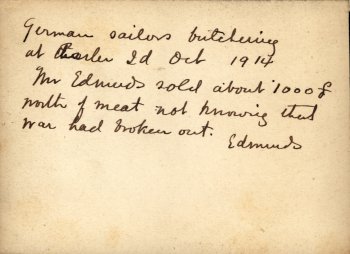 German sailors butchering
at 2d Oct 1914
Mr Edmuds sold about 1000£
worth of meat not knowing that
war had broken out.
Edmuds